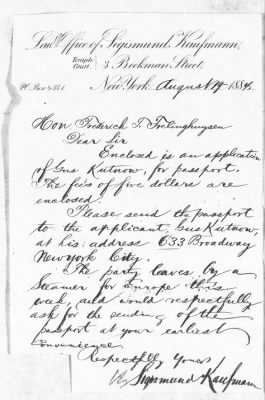 Law Office of Sigismund Kaufmann,
Temple Court.
3 Beekman Street,
New York August 19 1884
Hon Frederick T. Frelinghuysen
Dear Sir
Enclosed is an application
of Gus Kutnow, for passport.
The fees of five dollars are
enclosed.
Please send the passport
to the applicant, Gus Kutnow,
at his address 633 Broadway
New york City.
The party leaves by a
Steamer for Europe this
week, and would respectfully
ask for the sending of the
passport at your earliest
convenience
Respectfully Yours
Sigismund Kaufmann